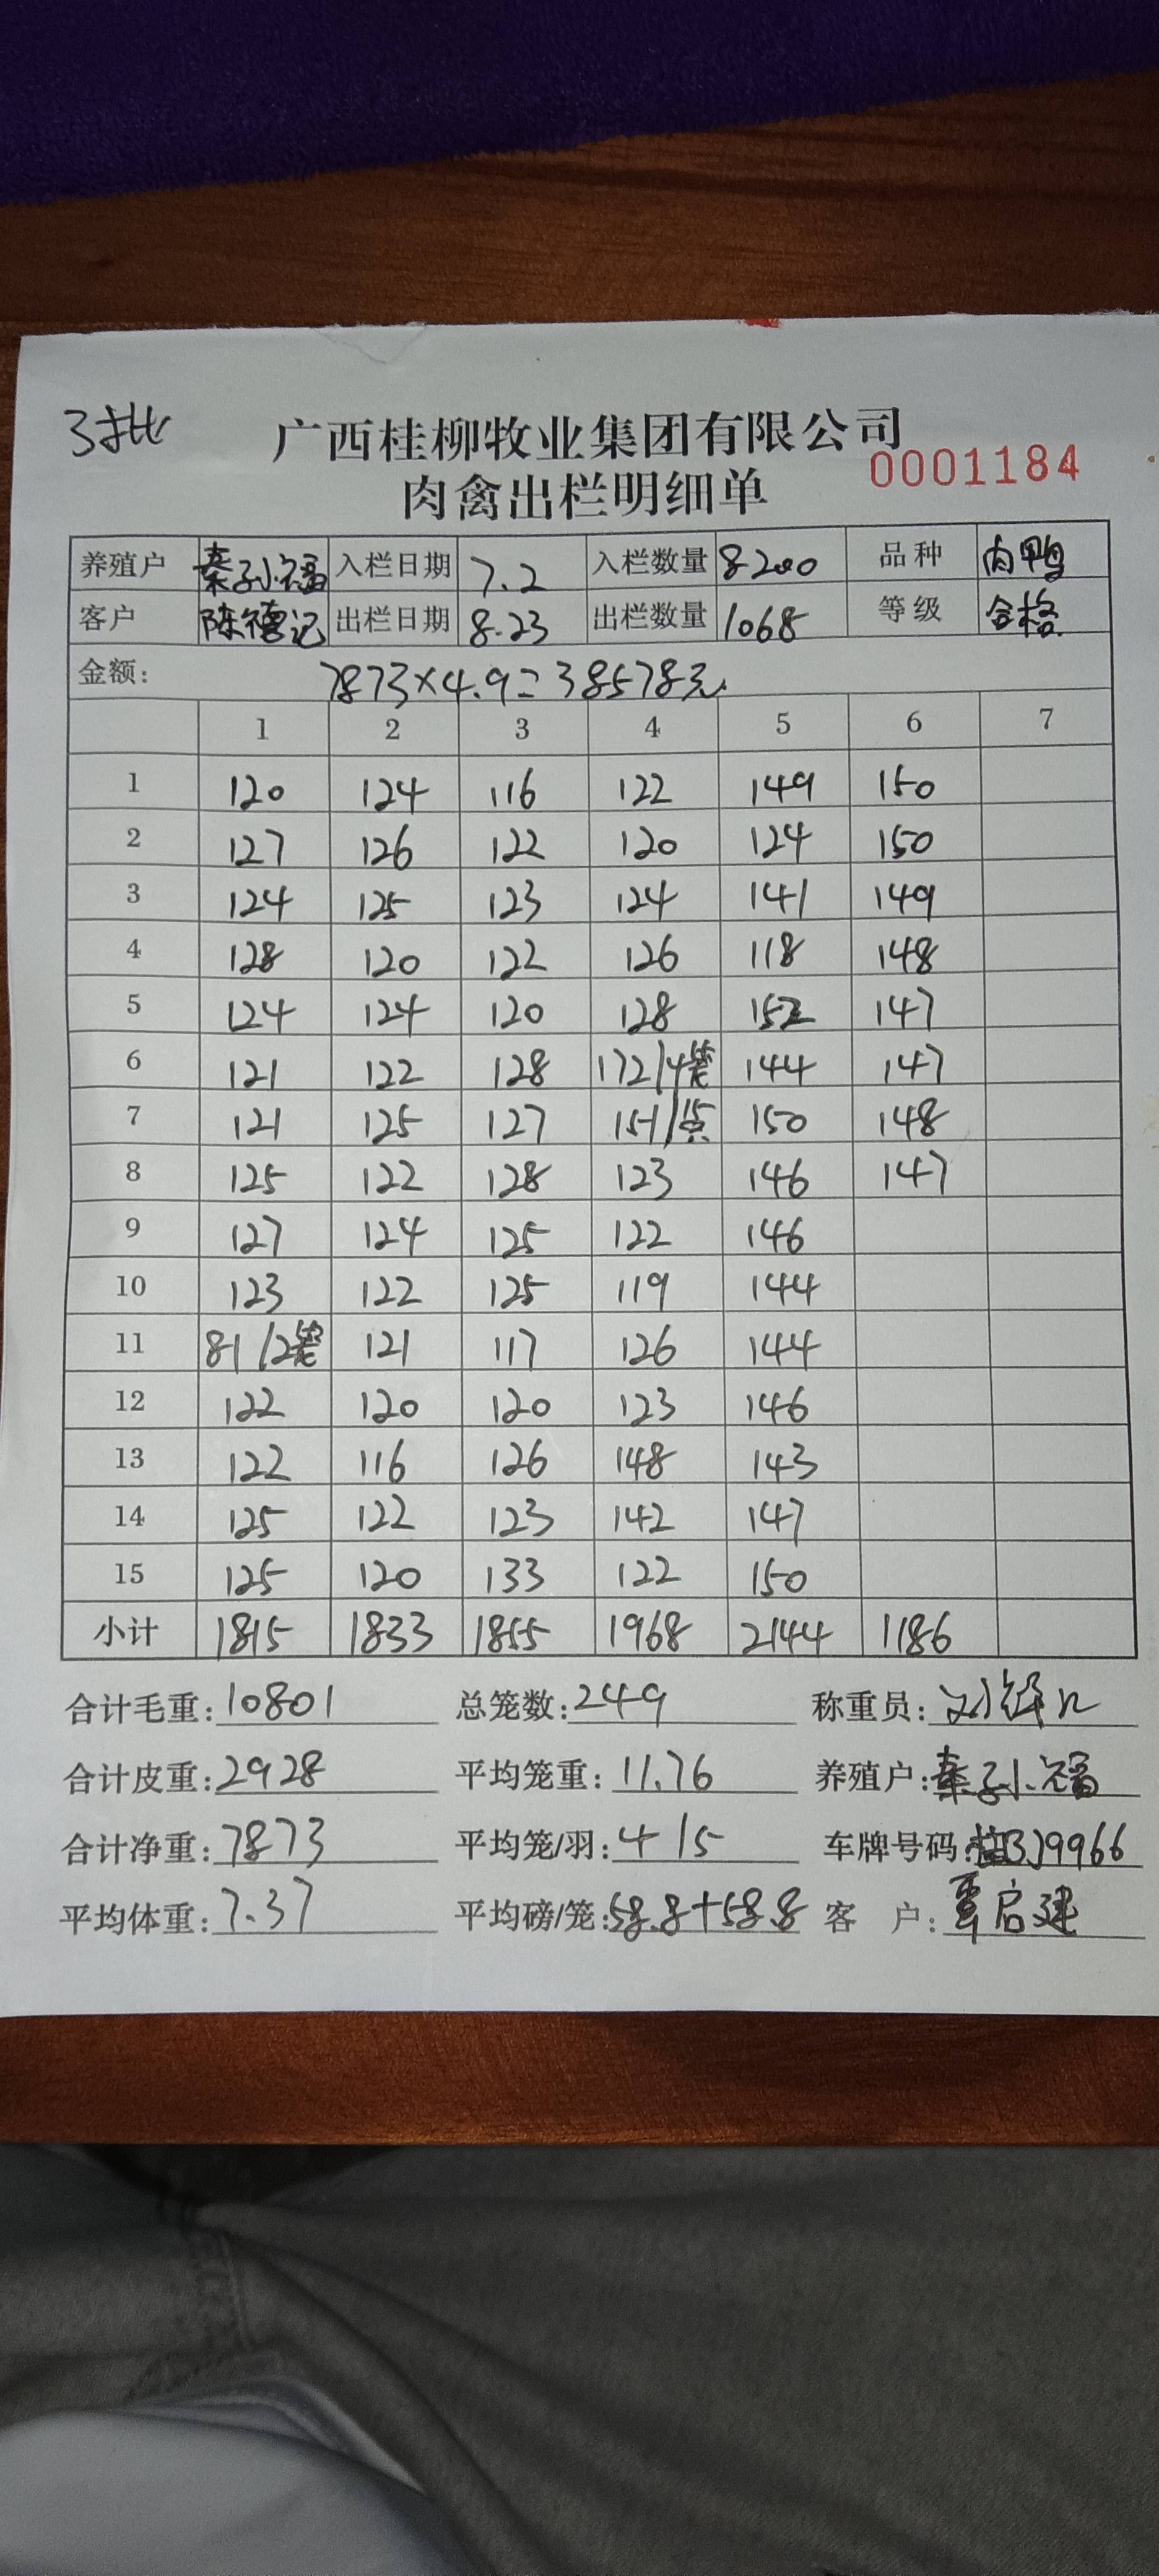 3批
广西桂柳牧业集团有限公司
0001184
肉禽出栏明细单
养殖户 秦孙福 入栏日期 7.2 入栏数量 8200 品种 肉鸭
客户 陈德记 出栏日期 8.23 出栏数量 1068 等级 合格
金额: 7873×4.9=38578元.
1 2 3 4 5 6 7
1 120 124 116 122 149 150
2 127 126 122 120 124 150
3 124 125 123 124 141 149
4 128 120 122 126 118 148
5 124 124 120 128 152 147
6 121 122 128 172/4笼 144 147
7 121 125 127 151/ 150 148
8 125 122 128 123 146 147
9 127 124 125 122 146
10 123 122 125 119 144
11 81/2笼 121 117 126 144
12 122 120 120 123 146
13 122 116 126 148 143
14 125 122 123 142 147
15 125 120 133 122 150
小计 1815 1833 1855 1968 2144 1186
合计毛重:10801 总笼数:249 称重员:
合计皮重:2928 平均笼重:11.76 养殖户:秦孙福
合计净重:7873 平均笼/羽:4 15 车牌号码:桂BJ9966
平均体重:7.37 平均磅/笼:58.8+58.8 客 户:覃启建